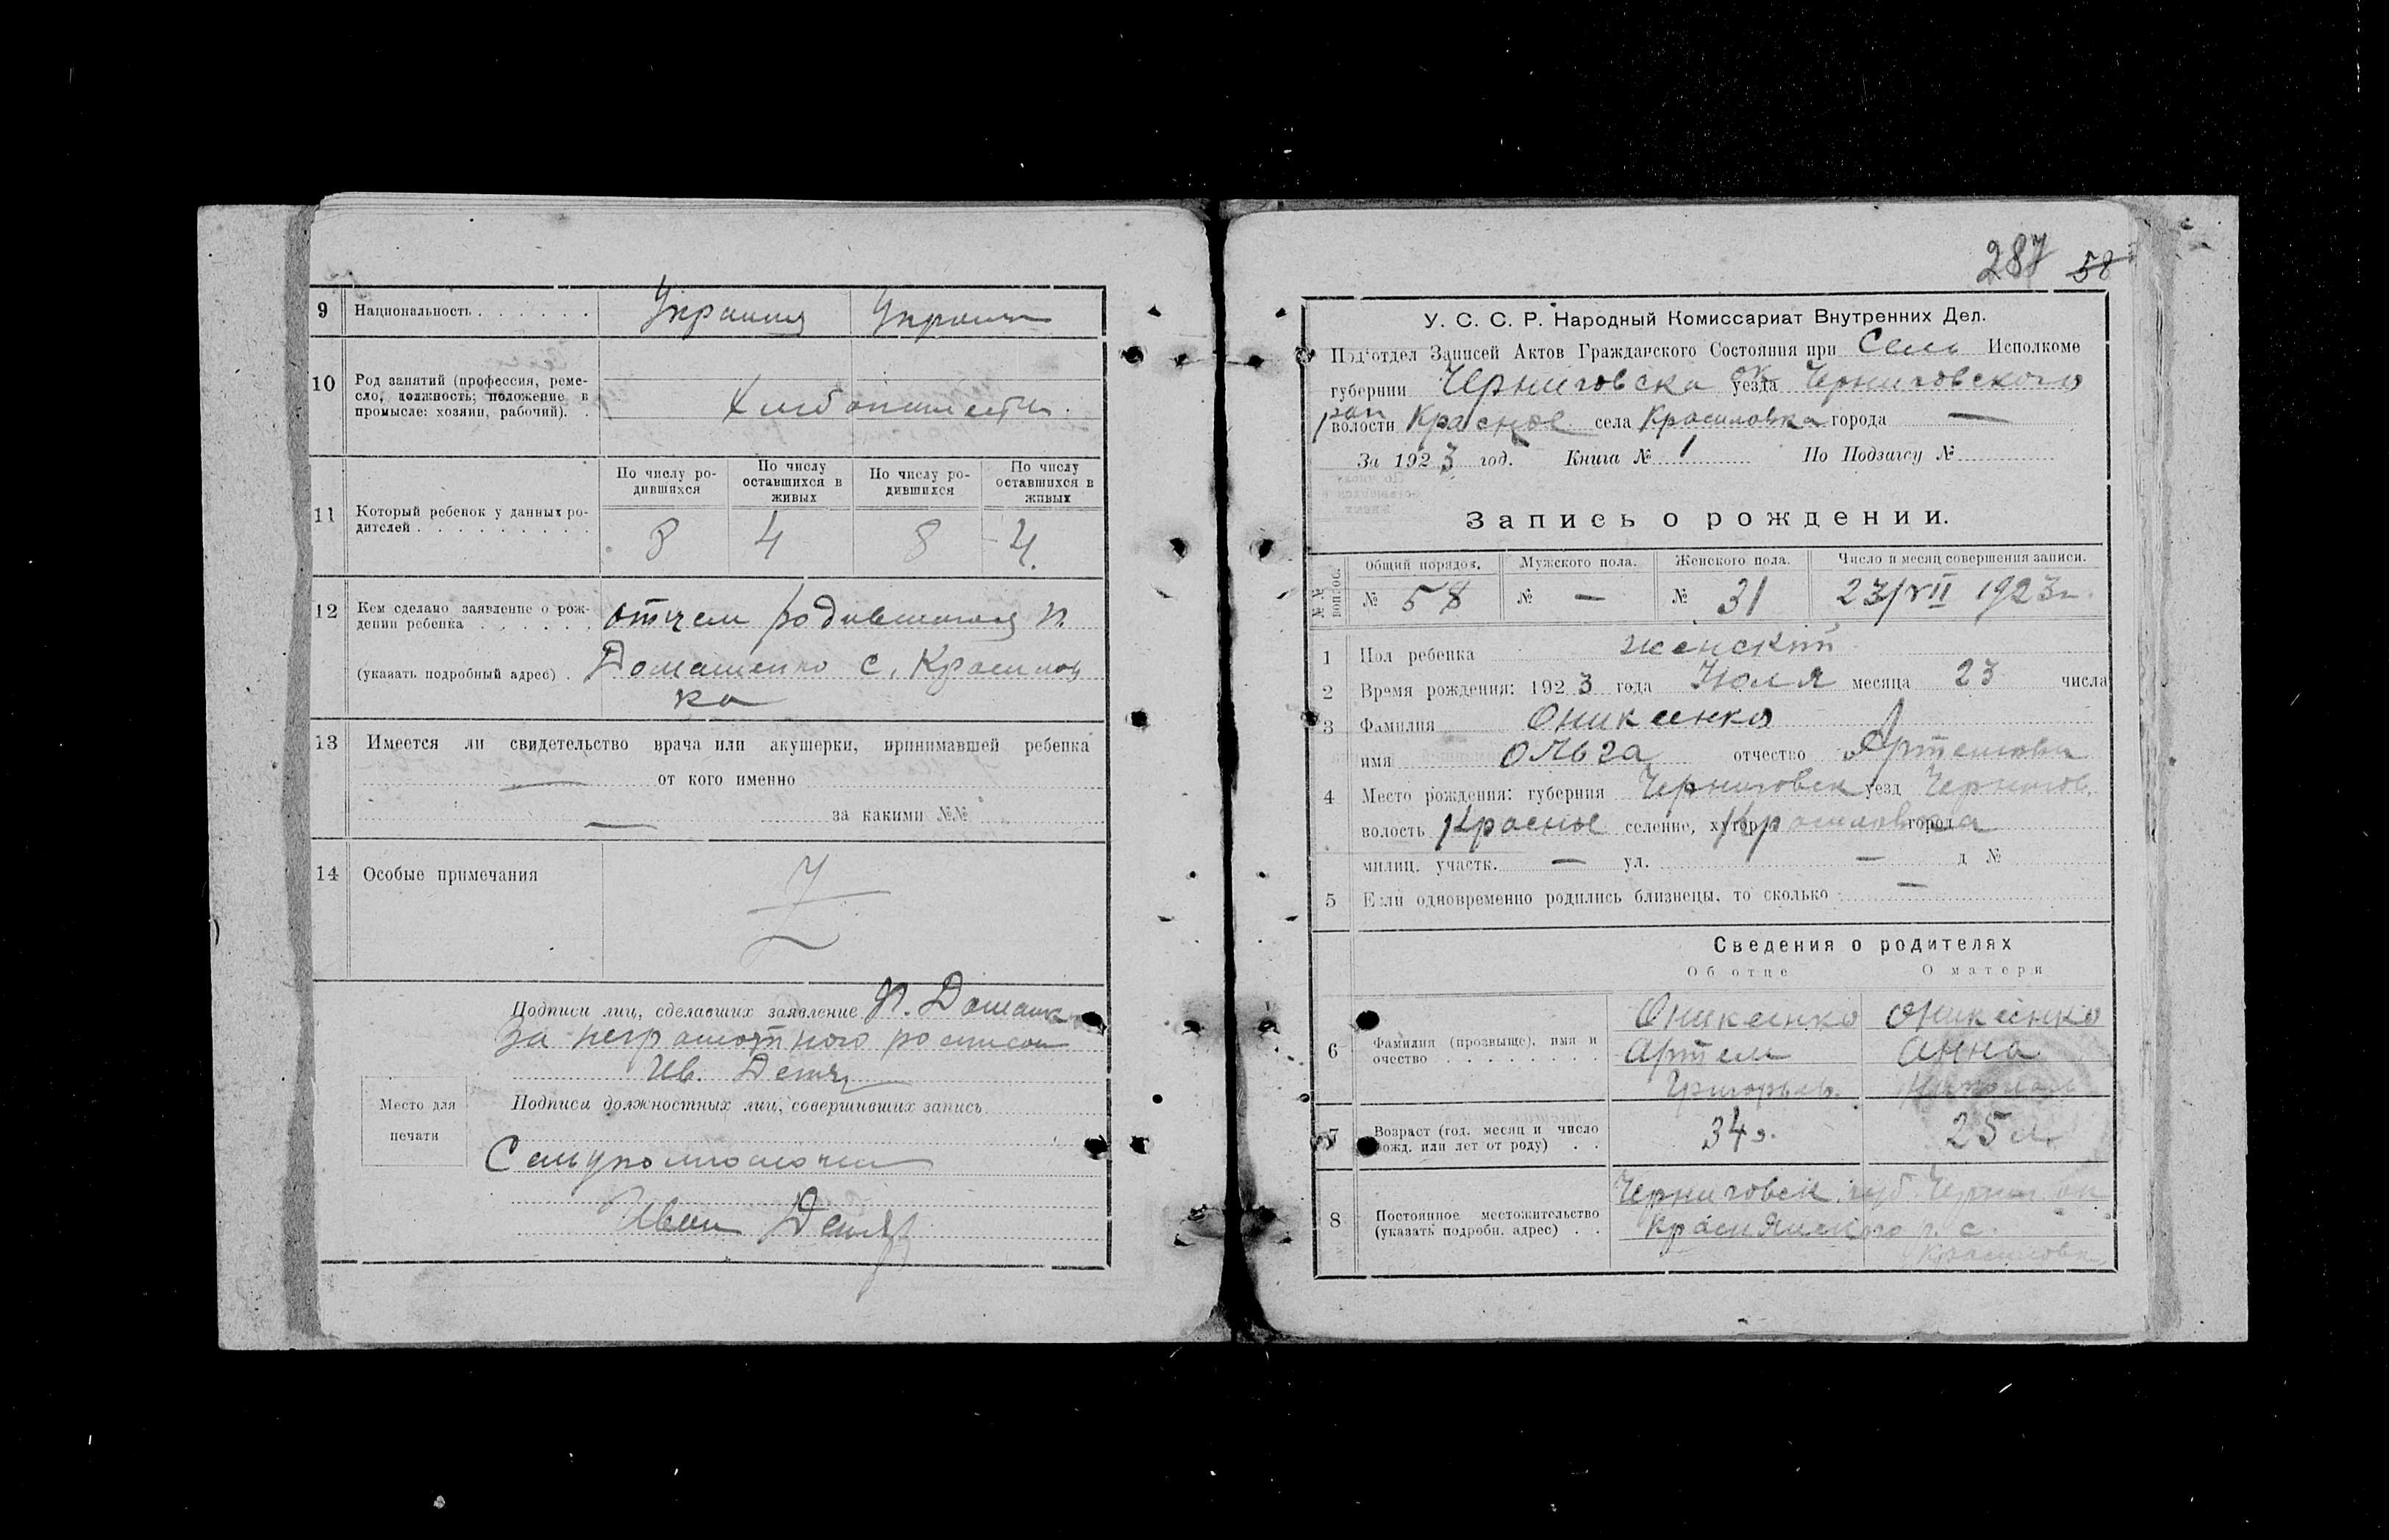 9 Национальность . . . . . . Украинц Украин
10 Род занятий (профессия, реме-
сло, должность; положение в
промысле: хозяин, рабочий). .
Хлибопашести.
По числу ро-
дившихся
По числу
оставшихся в
живых
По числу ро-
дившихся
По числу
оставшихся в
живых
11 Который ребенок у данных ро-
дителей . . . . . . . . .
8 4 8 4.
12 Кем сделано заявление о рож-
дении ребенка . . . . . . отчем родившогося П.
(указать подробный адрес) . Домашенко с. Красилов
ка
13 Имеется ли свидетельство врача или акушерки, принимавшей ребенка
— от кого именно
— за какими №№
14 Особые примечания
Подписи лиц, сделавших заявление П. Домашк
За неграмотного росписом
Ив. Демц
Место для
печати
Подписи должностных лиц, совершивших запись
Сельуполномочен
Иван
287 58
У. С. С. Р. Народный Комиссариат Внутренних Дел.
Под'отдел Записей Актов Гражданского Состояния при Сель Исполкоме
губернии Черниговска ок уезда Черниговского
рай
волости Красное села Красиловка города —
За 1923 год. Книга № 1 По Подзагсу №
Запись о рождении.
№№ вопрос.
Общий порядок. Мужского пола. Женского пола. Число и месяц совершения записи.
№ 58 № — № 31 23/VII 1923 г.
1 Пол ребенка женский
2 Время рождения: 1923 года Июля месяца 23 числа
3 Фамилия Оникеенко
имя Ольга отчество Артемовн
4 Место рождения: губерния Черниговск уезд Чернигов.
волость Красное селение, хутор Красиловка города
милиц. участк. — ул. — д №
5 Если одновременно родились близнецы, то сколько —
Сведения о родителях
Об отце О матери
6 Фамилия (прозвище), имя и
очество . . . . . . . .
Оникеенко Оникеенко
Артем Анна
Григорьев.
7 Возраст (год, месяц и число
рожд. или лет от роду) . .
34 25 л.
8 Постоянное местожительство
(указать подробн. адрес) . .
Черниговск. губ. Черниг. ок
Краснянского р. с.
Красиловка